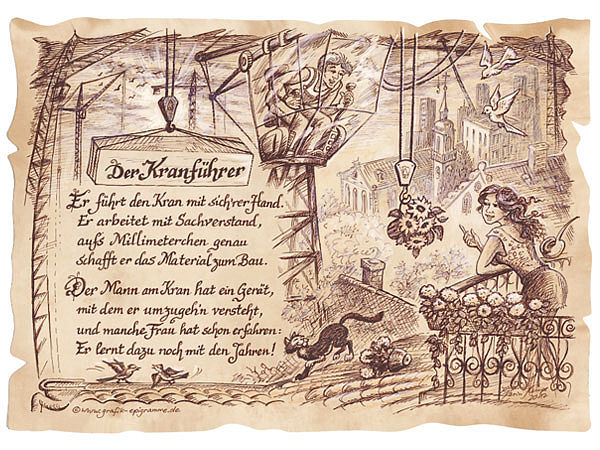 Der Kranführer
Er führt den Kran mit sich'rer Hand.
Er arbeitet mit Sachverstand,
aufs Millimeterchen genau
schafft er das Material zum Bau.
Der Mann am Kran hat ein Gerät,
mit dem er umzugeh'n versteht,
und manche Frau hat schon erfahren:
Er lernt dazu noch mit den Jahren!
©www.grafik-epigramme.de